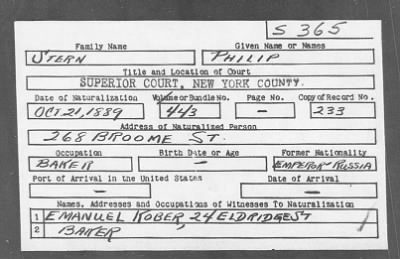 S 365
Family Name Given Name or Names
STERN PHILIP
Title and Location of Court
SUPERIOR COURT, NEW YORK COUNTY.
Date of Naturalization Volume or Bundle No. Page No. Copy of Record No.
OCT. 21, 1889 443 — 233
Address of Naturalized Person
268 BROOME ST.
Occupation Birth Date or Age Former Nationality
BAKER — EMPEROR RUSSIA
Port of Arrival in the United States Date of Arrival
— —
Names, Addresses and Occupations of Witnesses To Naturalization
1 EMANUEL KOBER, 24 ELDRIDGE ST
2 BAKER